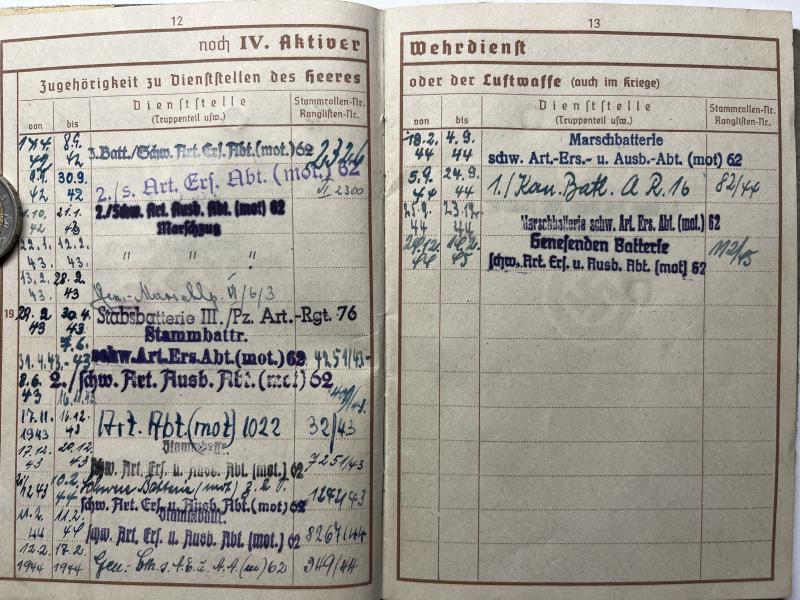 12
noch IV. Aktiver
Zugehörigkeit zu Dienststellen des Heeres
von bis Dienststelle (Truppenteil usw.) Stammrollen-Nr. Ranglisten-Nr.
8.9.
42 3. Batt./Schw. Art. Ers. Abt. (mot.) 62 2326
30.9.
42 42 2./s. Art. Ers. Abt. (mot.) 62 2300
2./Schw. Art. Ausb. Abt. (mot) 62
Marschzug
12.2.
43. 43. " " "
13.2. 28.2.
43. 43 VI/6/3
19
30.4.
43 43 Stabsbatterie III./Pz. Art.-Rgt. 76
Stammbattr.
7.6.
43 schw. Art. Ers. Abt. (mot) 62 4251/43
8.6.
43 2./schw. Art. Ausb. Abt. (mot) 62
17.11. 16.12.
1943 43 Art. Abt. (mot) 1022 32/43
17.12. 20.12.
43 43 schw. Art. Ers. u. Ausb. Abt. (mot.) 62 7251/43
10.2.
44 Schwere Batterie (mot) z. b. V.
schw. Art. Ers. u. Ausb. Abt. (mot) 62
Stammbattr.
11.2. 11.2.
44 44 schw. Art. Ers. u. Ausb. Abt. (mot.) 62 8267/44
12.2. 17.2.
1944 1944 349/44
13
Wehrdienst
oder der Luftwaffe (auch im Kriege)
von bis Dienststelle (Truppenteil usw.) Stammrollen-Nr. Ranglisten-Nr.
18.2. 4.9. Marschbatterie
44 44 schw. Art.-Ers.- u. Ausb.-Abt. (mot) 62
5.9. 24.9.
44 44 1./Kan. Batt. A.R. 16 82/44
25.9. 23.12.
44 44 Marschbatterie schw. Art. Ers. Abt. (mot.) 62
Genesenden Batterie
45 schw. Art. Ers. u. Ausb. Abt. (mot) 62